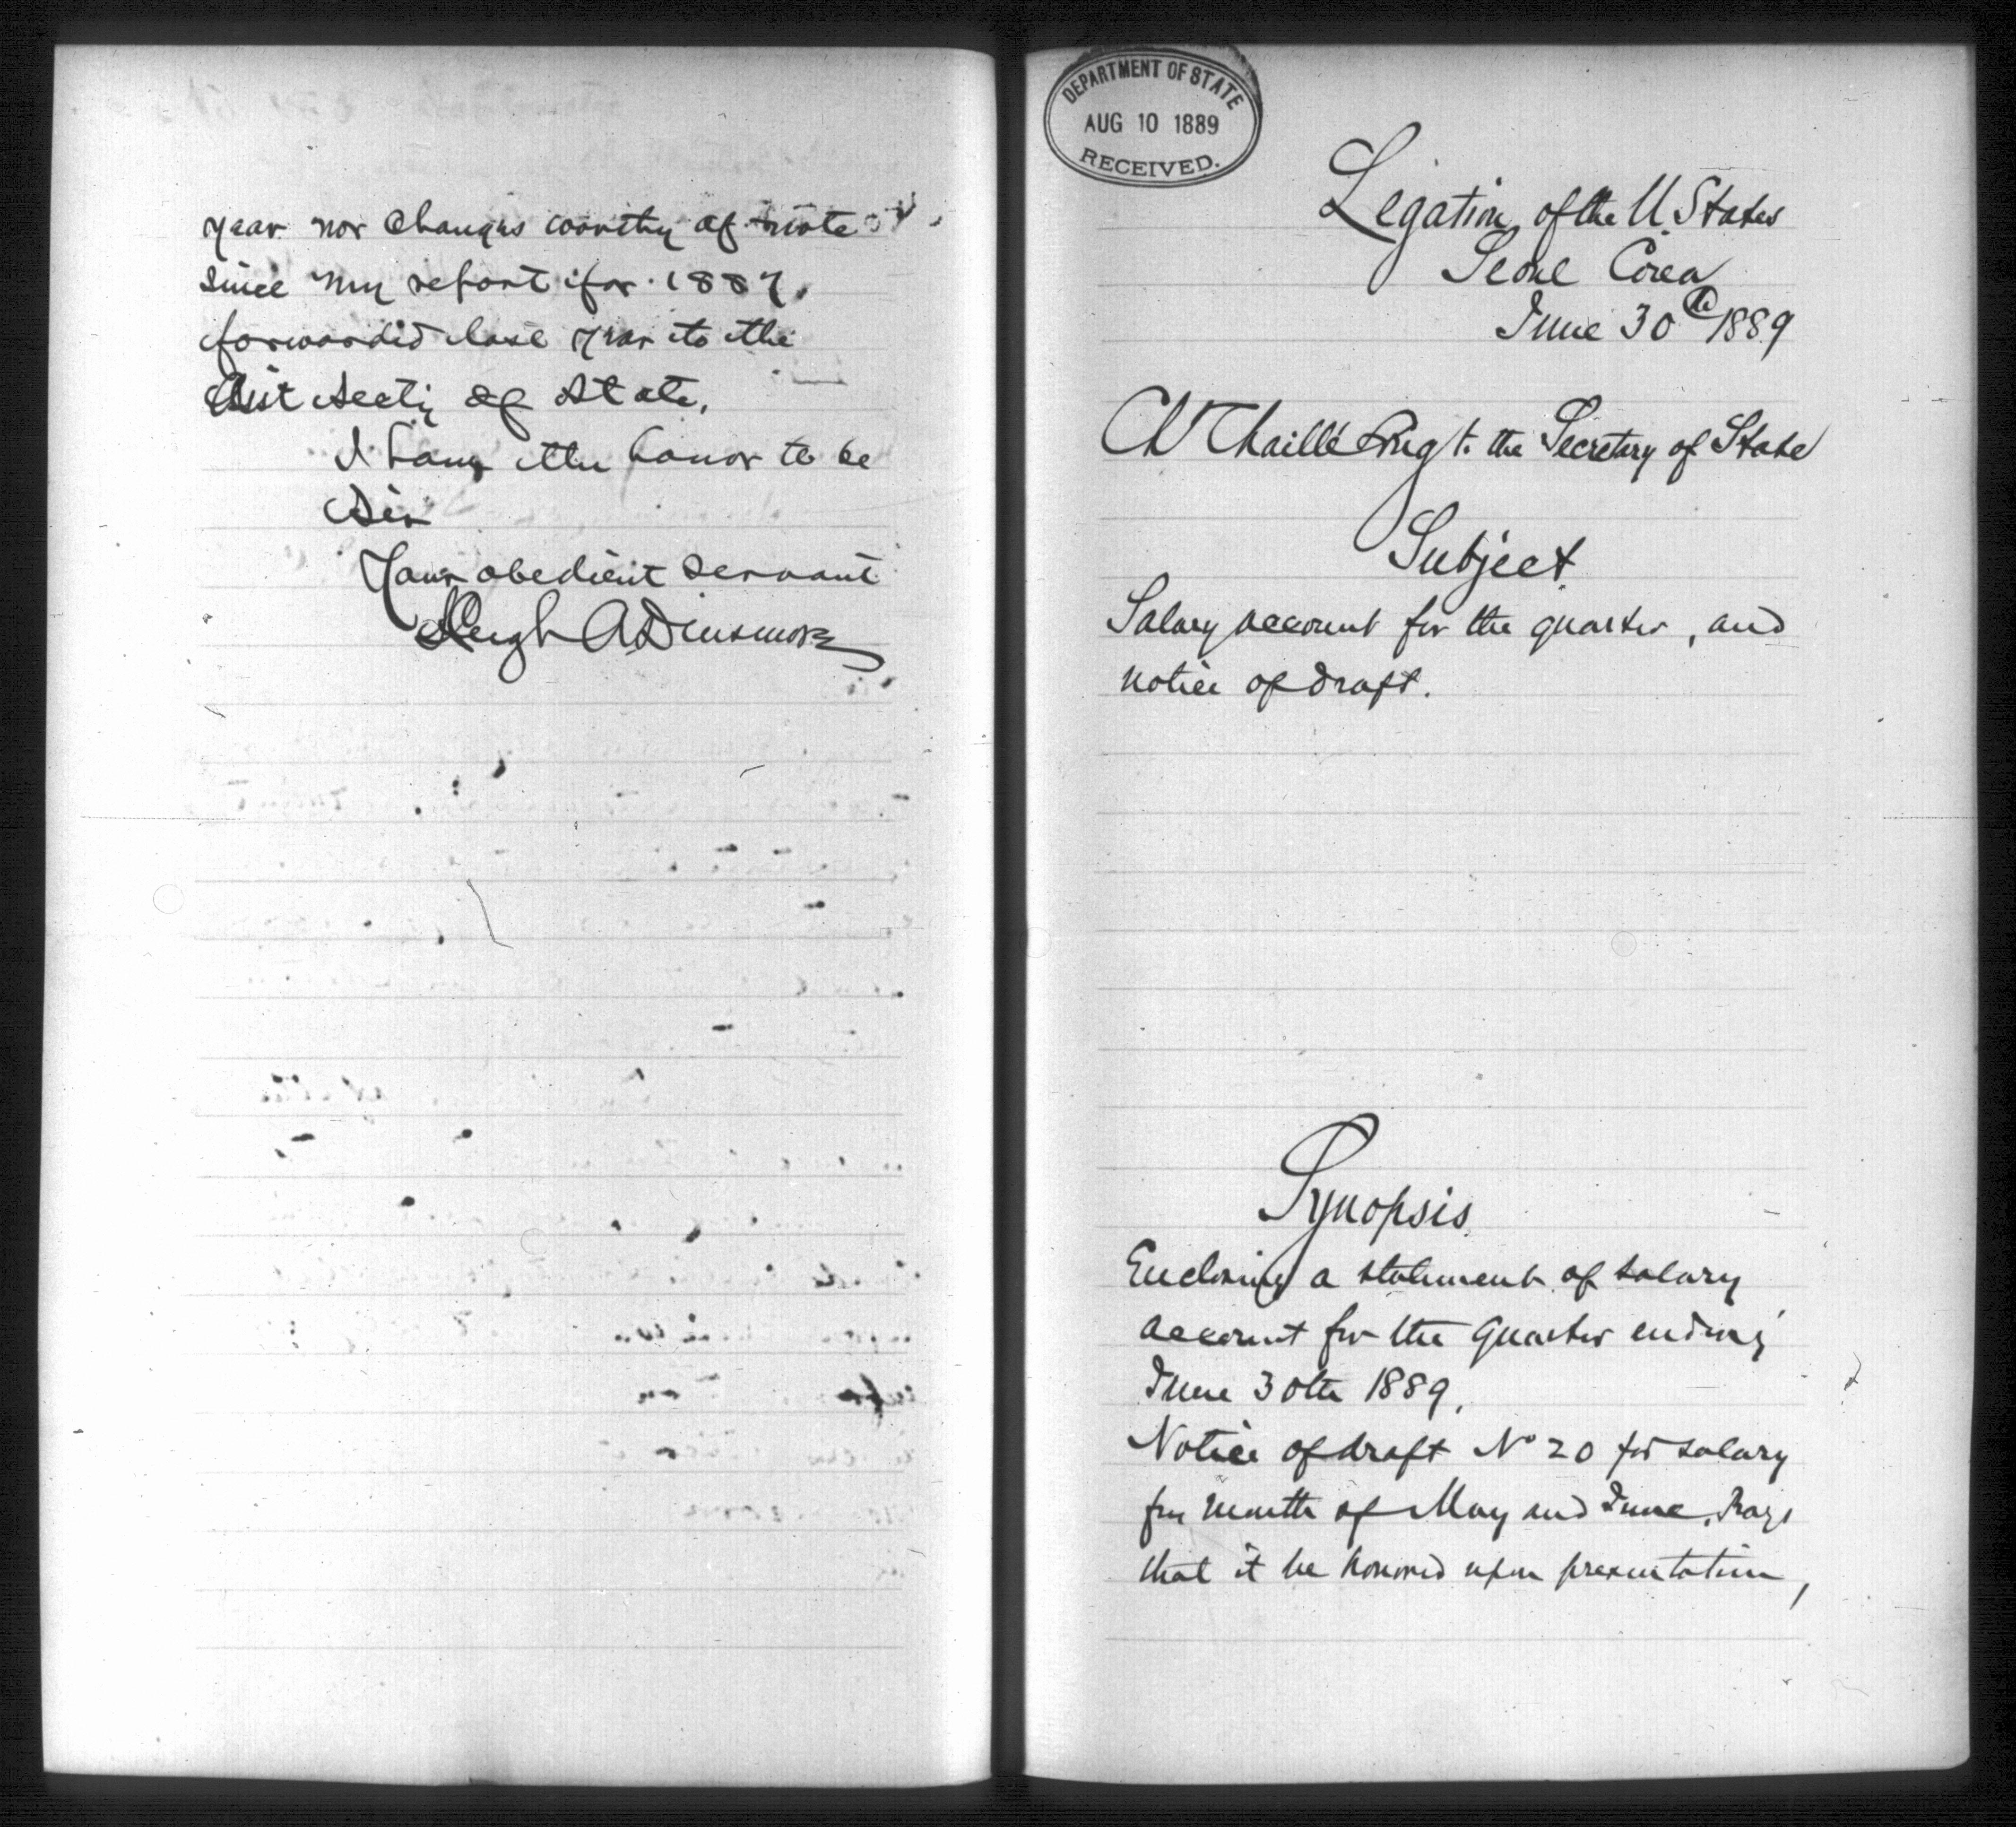 year nor changes worthy of note
since my report for 1887,
forwarded last year to the
Asst Secty of State.
I have the honor to be
Sir
Your obedient servant
Hugh A Dinsmore
DEPARTMENT OF STATE
AUG 10 1889
RECEIVED.
Legation of the U. States
Seoul Corea
June 30th 1889
Ch Chaillé Long to the Secretary of State
Subject
Salary account for the quarter, and
notice of draft.
Synopsis
Enclosing a statement of salary
account for the quarter ending
June 30th 1889.
Notice of draft No 20 for salary
for month of May and June. Prays
that it be honored upon presentation,